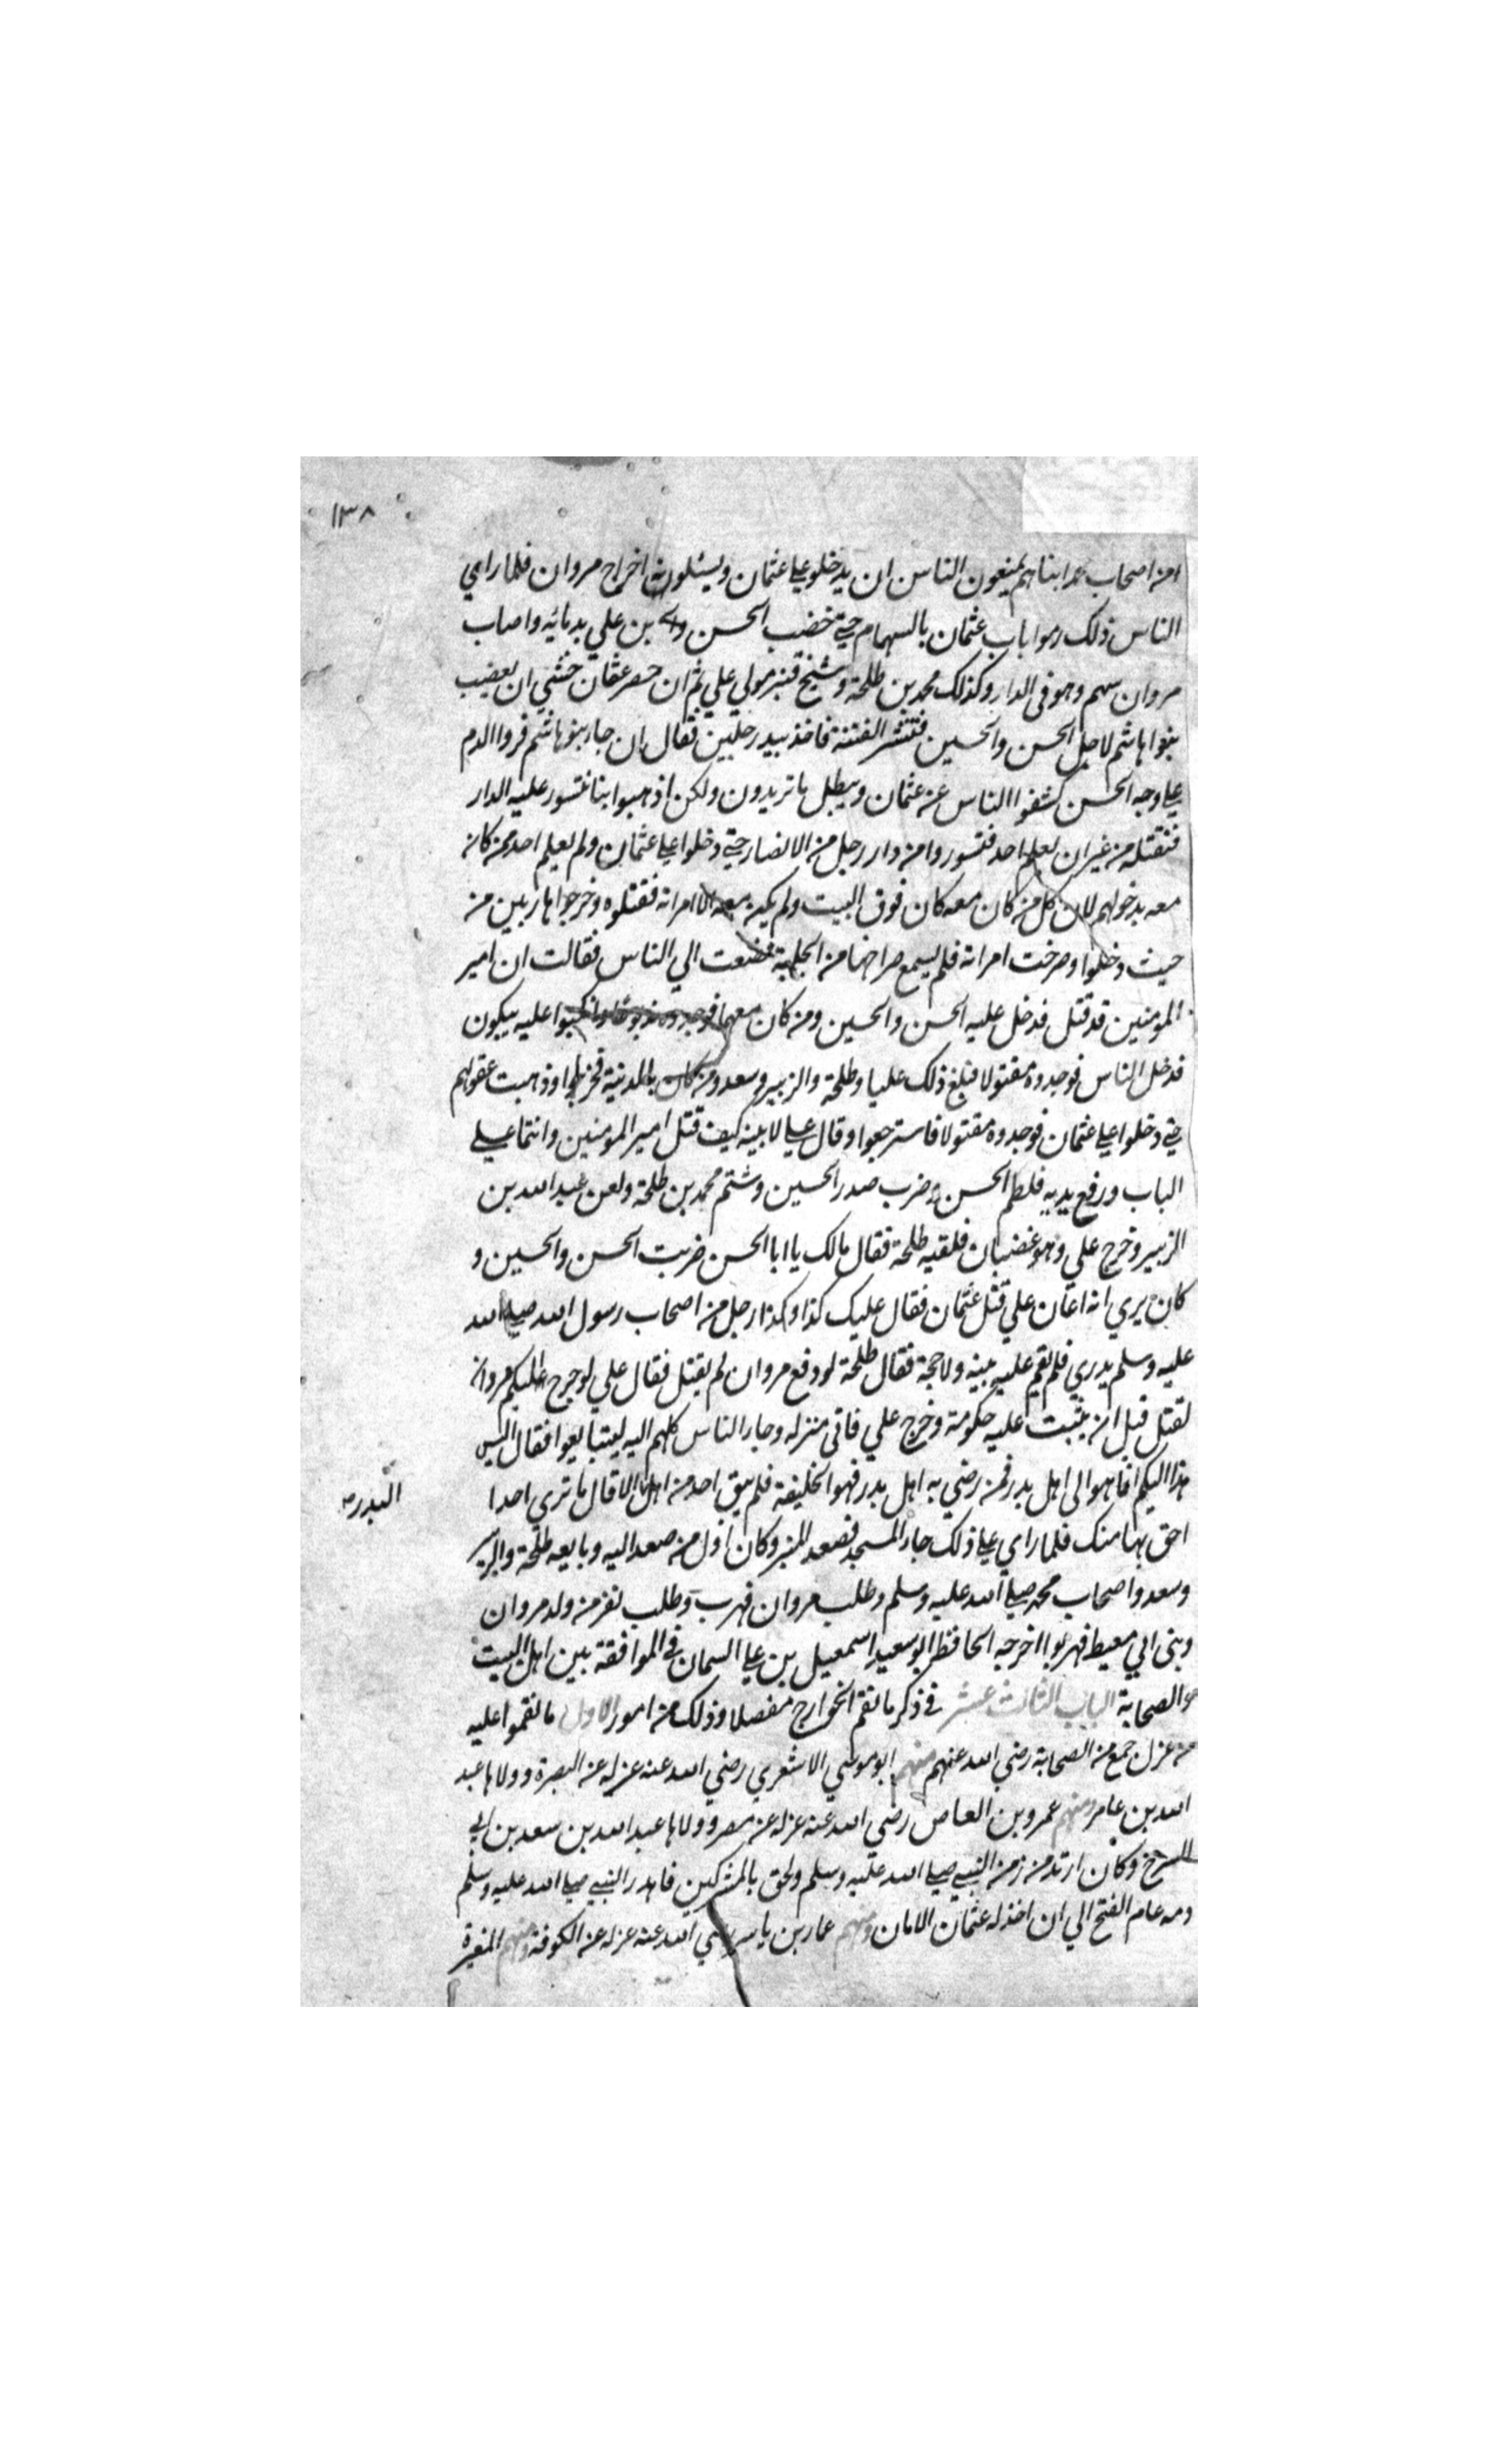 ١٣٨
من اصحاب محمد ابناهم يمنعون الناس ان يدخلوا علي عثمان ويسئلونه اخراج مروان فلما راي
الناس ذلك رموا باب عثمان بالسهام حتي خضب الحسن بن علي بدمائه واصاب
مروان سهم وهو في الدار وكذلك محمد بن طلحة وشج قنبر مولي علي ثم ان حصر عثمان خشي ان يغضب
بنوا هاشم لاجل الحسن والحسين فتنتشر الفتنة فاخذ بيد رجلين فقال ان جا بنو هاشم فروا الدم
علي وجه الحسن كشفوا الناس عن عثمان ويبطل ما تريدون ولكن اذهبوا بنا نتسور عليه الدار
فنقتله من غير ان يعلم احد فتسوروا من دار رجل من الانصار حتي دخلوا علي عثمان ولم يعلم احد ممن كان
معه بدخولهم لان كل من كان معه كان فوق البيت ولم يكن معه الا امراته فقتلوه وخرجوا هاربين من
حيث دخلوا وصرخت امراته فلم يسمع صراخها من الجلبة فصعدت الي الناس فقالت ان امير
المومنين قد قتل فدخل عليه الحسن والحسين ومن كان معهما فوجدوه مذبوحا فانكبوا عليه يبكون
فدخل الناس فوجدوه مقتولا فبلغ ذلك عليا وطلحة والزبير وسعد ومن كان بالمدينة فخرجوا وذهبت عقولهم
حتي دخلوا علي عثمان فوجدوه مقتولا فاسترجعوا وقال علي لابنيه كيف قتل امير المومنين وانتما علي
الباب ورفع يديه فلطم الحسن وضرب صدر الحسين وشتم محمد بن طلحة ولعن عبد الله بن
الزبير وخرج علي وهو غضبان فلقيه طلحة فقال مالك يا ابا الحسن ضربت الحسن والحسين و
كان يري انه اعان علي قتل عثمان فقال عليك كذا وكذا رجل من اصحاب رسول الله صلي الله
عليه وسلم بدري فلم تقم عليه بينه ولا حجة فقال طلحة لو دفع مروان لم يقتل فقال علي لو خرج اليكم مروان
لقتل قبل ان يثبت عليه حكومة وخرج علي فاتي منزله وجا الناس كلهم اليه ليتبايعوا فقال ليس
هذا اليكم انما هو الي اهل بدر فمن رضي به اهل بدر فهو الخليفة فلم يبق احد من اهل الا قال ما تري احدا
البدر
احق بها منك فلما راي علي ذلك جا المسجد فصعد المنبر وكان اول من صعد اليه وبايعه طلحة والزبير
وسعد واصحاب محمد صلي الله عليه وسلم وطلب مروان فهرب وطلب نفر من ولد مروان
وبني ابي معيط فهربوا اخرجه الحافظ ابو سعيد اسمعيل بن علي السمان في الموافقة بين اهل البيت
والصحابة الباب الثالث عشر في ذكر ما نقم الخوارج مفصلا وذلك من امور الاول ما نقموا عليه
من عزل جمع من الصحابة رضي الله عنهم منهم ابو موسي الاشعري رضي الله عنه عزله عن البصرة وولاها عبد
الله بن عامر ومنهم عمرو بن العاص رضي الله عنه عزله عن مصر وولاها عبد الله بن سعد بن ابي
السرح وكان ارتد من زمن النبي صلي الله عليه وسلم ولحق بالمشركين فاهدر النبي صلي الله عليه وسلم
دمه عام الفتح الي ان اخذ له عثمان الامان ومنهم عمار بن ياسر رضي الله عنه عزله عن الكوفة ومنهم المغيرة